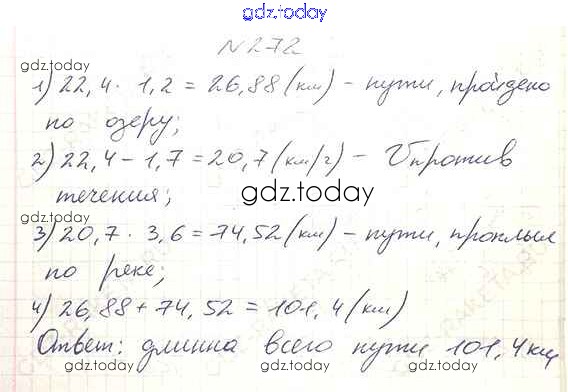 gdz.today
№272
gdz.today
1) 22,4 · 1,2 = 26,88 (км) – пути, пройдено
по озеру;
gdz.today
2) 22,4 – 1,7 = 20,7 (км/ч) – V против
течения;
gdz.today
3) 20,7 · 3,6 = 74,52 (км) – пути, проплыл
по реке;
gdz.today
4) 26,88 + 74,52 = 101,4 (км)
Ответ: длинна всего пути 101,4 км
gdz.today